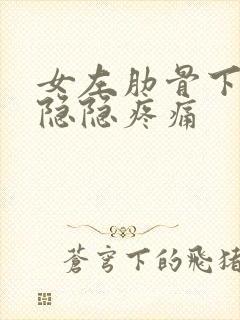 女左肋骨下
隐隐疼痛
蒼穹下的飛猪